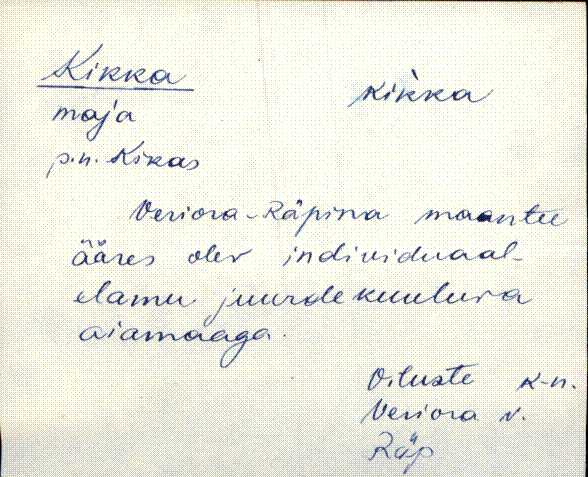 Kikka kikka
maja
p.n. Kikas
Veriora-Räpina maantee
ääres olev individuaal-
elamu juurdekuuluva
aiamaaga.
Viluste k-n.
Veriora v.
Räp